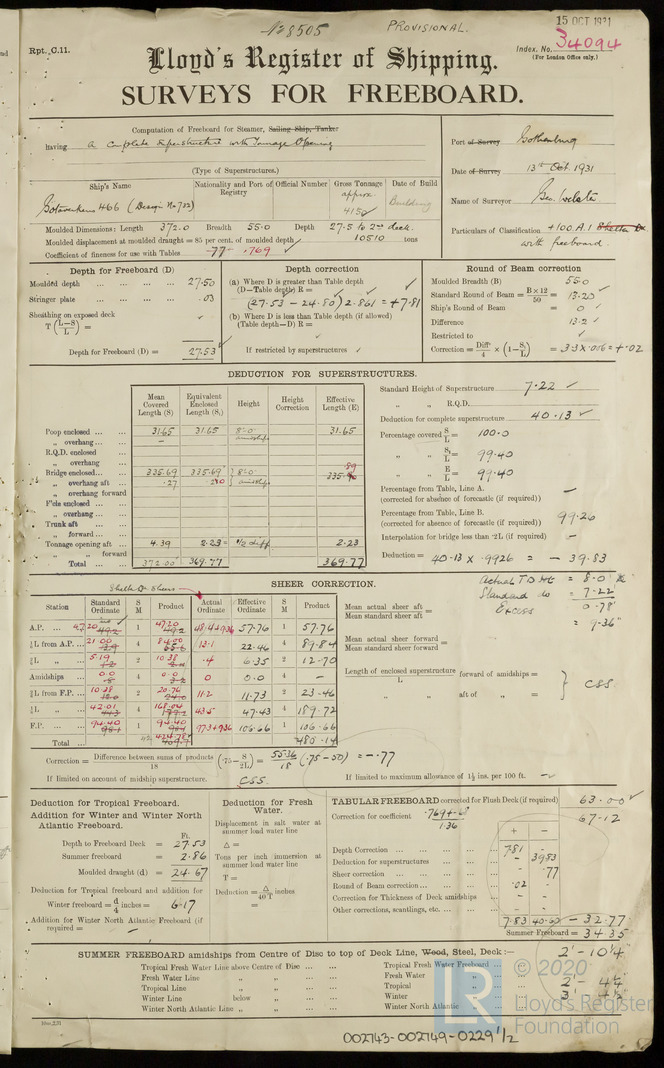 No 8505 PROVISIONAL. 15 OCT 1931
Rpt. C.11. Index. No. 34094
(For London Office only.)
Lloyd's Register of Shipping.
SURVEYS FOR FREEBOARD.
Computation of Freeboard for Steamer, Sailing Ship, Tanker
having a complete superstructure with Tonnage Opening
(Type of Superstructures.)
Port of Survey Gothenburg
Date of Survey 13th Oct. 1931
Name of Surveyor Geo.
Particulars of Classification +100.A.1
with freeboard.
Ship's Name Nationality and Port of Registry Official Number Gross Tonnage Date of Build
Gotaverken 466 (Design No 722) approx. 4150 Building
Moulded Dimensions: Length 372.0 Breadth 55.0 Depth 27.5 to 2nd deck.
Moulded displacement at moulded draught = 85 per cent. of moulded depth 10510 tons
Coefficient of fineness for use with Tables .77 .769
Depth for Freeboard (D)
Moulded depth 27.50
Stringer plate .03
Sheathing on exposed deck
T (L−S/L) =
Depth for Freeboard (D) = 27.53
Depth correction
(a) Where D is greater than Table depth
(D−Table depth) R =
(27.53 − 24.80) 2.861 = +7.81
(b) Where D is less than Table depth (if allowed)
(Table depth−D) R =
If restricted by superstructures
Round of Beam correction
Moulded Breadth (B) 55.0
Standard Round of Beam = B×12/50 = 13.20
Ship's Round of Beam = 0
Difference 13.2
Restricted to
Correction = Diffce/4 × (1−S1/L) = 3.3 × .006 = +.02
DEDUCTION FOR SUPERSTRUCTURES.
Mean Covered Length (S) Equivalent Enclosed Length (S1) Height Height Correction Effective Length (E)
Poop enclosed 31.65 31.65 8'-0" amidships 31.65
„ overhang −
R.Q.D. enclosed
„ overhang
Bridge enclosed 335.69 335.69 8'-0" amidships
„ overhang aft .27
„ overhang forward
F'cle enclosed
„ overhang
Trunk aft
„ forward
Tonnage opening aft 4.39 2.23 = ½ diff 2.23
„ „ forward
Total 372.00 369.77 369.77
Standard Height of Superstructure 7.22
„ „ R.Q.D.
Deduction for complete superstructure 40.13
Percentage covered S/L = 100.0
„ „ S1/L = 99.40
„ „ E/L = 99.40
Percentage from Table, Line A.
(corrected for absence of forecastle (if required)) −
Percentage from Table, Line B.
(corrected for absence of forecastle (if required)) 99.26
Interpolation for bridge less than ·2L (if required) −
Deduction = 40.13 × .9926 = − 39.83
SHEER CORRECTION.
Station Standard Ordinate S M Product Actual Ordinate Effective Ordinate S M Product
A.P. 47.20 1 47.20 57.76 1 57.76
⅙L from A.P. 21.00 4 84.00 13.1 22.46 4 89.84
⅓L „ 5.19 2 10.38 .4 6.35 2 12.70
Amidships 0.0 4 0.0 0 0.0 4 −
⅓L from F.P. 10.38 2 20.76 11.2 11.73 2 23.46
⅙L „ 42.01 4 168.04 43.5 47.43 4 189.72
F.P. 94.40 1 94.40 97.3+9.36 106.66 1 106.66
Total 424.78 480.14
Mean actual sheer aft / Mean standard sheer aft =
Mean actual sheer forward / Mean standard sheer forward =
Length of enclosed superstructure / L forward of amidships =
„ „ aft of „ =
C.S.S.
Actual T.D. Ht = 8.0'
Standard do = 7.22
Excess 0.78'
= 9.36"
Correction = Difference between sums of products / 18 (·75 − S/2L) = 55.36/18 (.75 − .50) = −.77
If limited on account of midship superstructure. C.S.S. If limited to maximum allowance of 1½ ins. per 100 ft. −
Deduction for Tropical Freeboard.
Addition for Winter and Winter North Atlantic Freeboard.
Ft.
Depth to Freeboard Deck = 27.53
Summer freeboard = 2.86
Moulded draught (d) = 24.67
Deduction for Tropical freeboard and addition for
Winter freeboard = d/4 inches = 6.17
Addition for Winter North Atlantic Freeboard (if required) = −
Deduction for Fresh Water.
Displacement in salt water at summer load water line
Δ =
Tons per inch immersion at summer load water line
T =
Deduction = Δ/40 T inches
=
TABULAR FREEBOARD corrected for Flush Deck (if required) 63.00
Correction for coefficient .769+.68 / 1.36 67.12
+ −
Depth Correction 7.81 −
Deduction for superstructures − 39.83
Sheer correction − .77
Round of Beam correction .02 −
Correction for Thickness of Deck amidships − −
Other corrections, scantlings, etc. − −
7.83 40.60 − 32.77
Summer Freeboard = 34.35
SUMMER FREEBOARD amidships from Centre of Disc to top of Deck Line, Wood, Steel, Deck:— 2' − 10¼"
Tropical Fresh Water Line above Centre of Disc Tropical Fresh Water Freeboard
Fresh Water Line „ „ Fresh Water „
Tropical Line „ „ Tropical „ 2' − 4¼"
Winter Line below „ Winter „
Winter North Atlantic Line „ „ Winter North Atlantic „
LR © 2020
Lloyd's Register
Foundation
002743-002749-0229 1/2